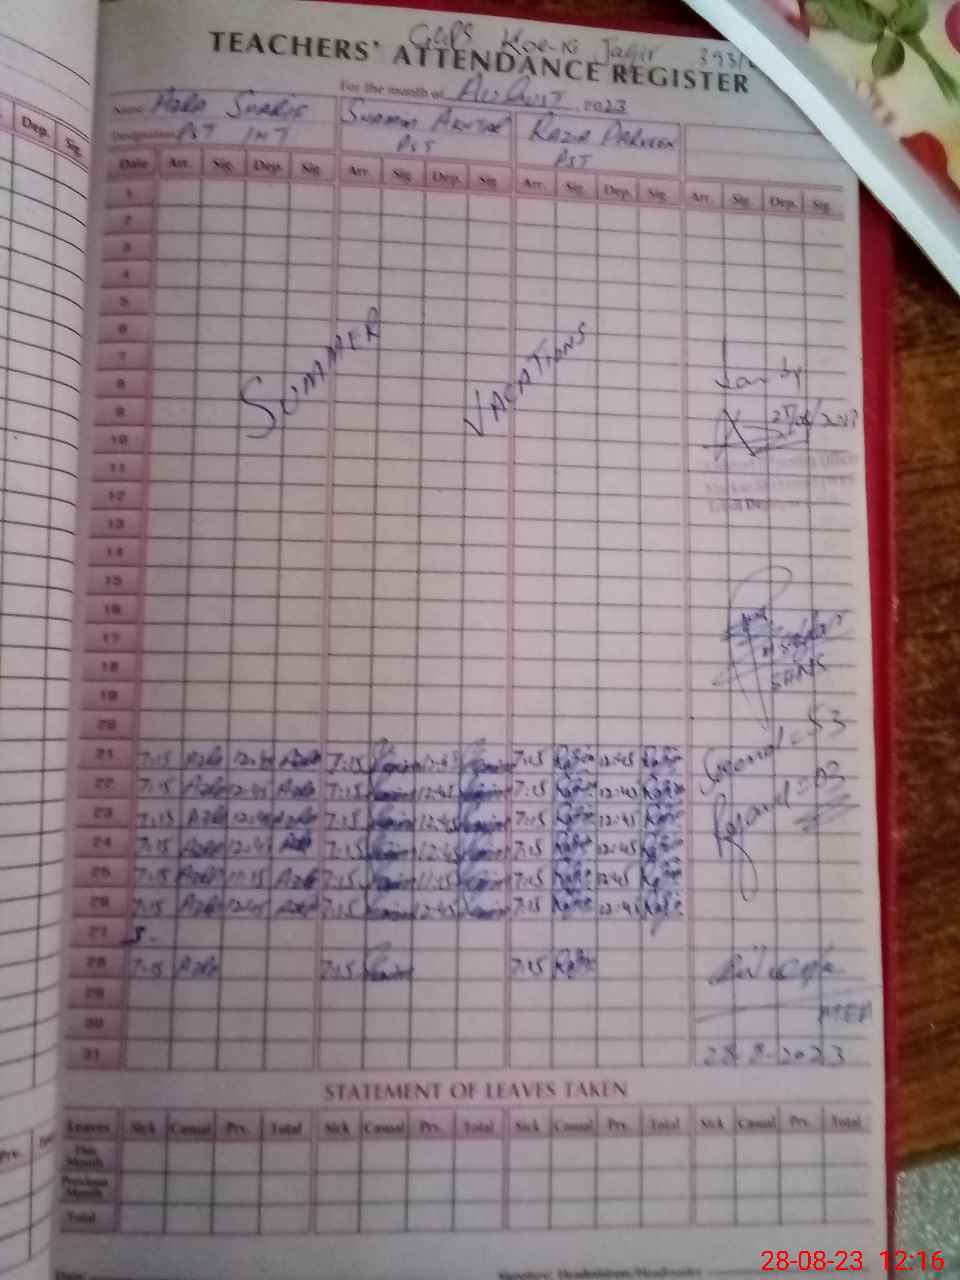 GGPS Kot-Ki Jagir 393/
TEACHERS' ATTENDANCE REGISTER
For the month of August 2023
Name Azra Sharif Shamim Akhtar Razia Parveen
Designation PST INT PST PST
Date Arr. Sig. Dep. Sig. Arr. Sig. Dep. Sig. Arr. Sig. Dep. Sig. Arr. Sig. Dep. Sig.
1
2
3
4
5
6
7
8
9
10
11
12
13
14
15
16
17
18
19
20
SUMMER VACATIONS
21 7:15 Azra 12:45 Azra 7:15 12:45 7:15 Razia 12:45 Razia
22 7:15 Azra 12:45 Azra 7:15 12:45 7:15 Razia 12:45 Razia
23 7:15 Azra 12:45 Azra 7:15 12:45 7:15 Razia 12:45 Razia
24 7:15 Azra 12:45 Azra 7:15 12:45 7:15 Razia 12:45 Razia
25 7:15 Azra 11:15 Azra 7:15 11:15 7:15 Razia 12:45 Razia
26 7:15 Azra 12:45 Azra 7:15 12:45 7:15 Razia 12:45 Razia
27 S.
28 7:15 Azra 7:15 7:15 Razia
29
30
31
= 53
= 03
MEA
28-8-2023
STATEMENT OF LEAVES TAKEN
Leaves Sick Casual Prv. Total Sick Casual Prv. Total Sick Casual Prv. Total Sick Casual Prv. Total
This Month
Previous Month
Total
Date: Signature: Headmistress/Headmaster
Dep. Sig.
28-08-23 12:16